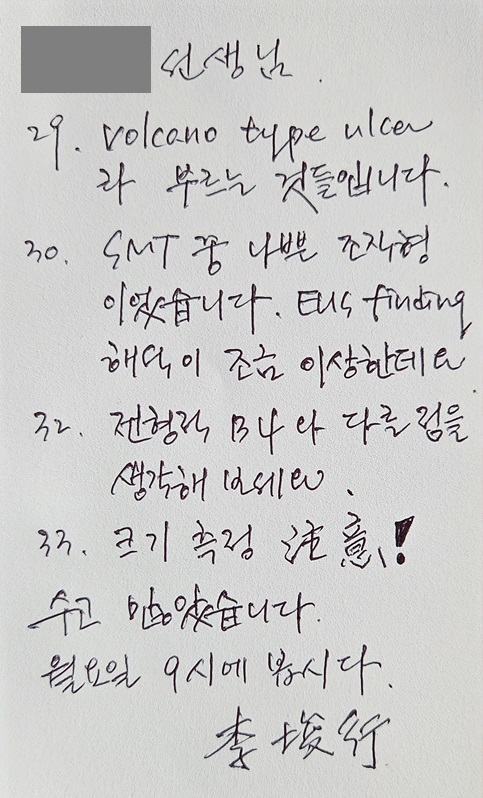 선생님.
29. Volcano type ulcer
라 부르는 것들입니다.
30. SMT 중 나쁜 조직형
이었습니다. EUS finding
해석이 조금 이상한데요.
32. 전형적 B4와 다른 점을
생각해 보세요.
33. 크기 측정 注意!
수고 많았습니다.
월요일 9시에 봅시다.
李埈行